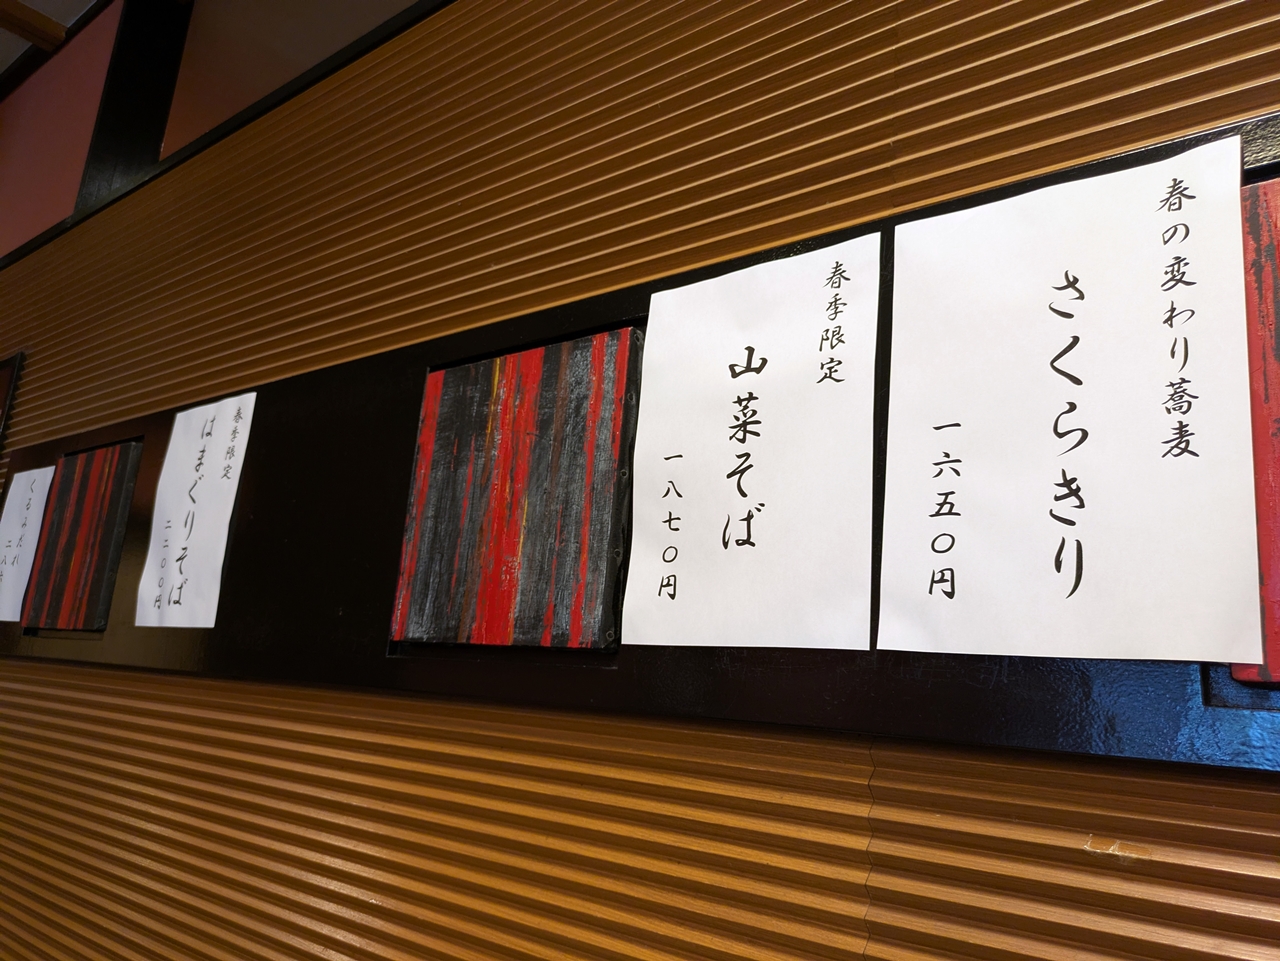 春の変わり蕎麦
さくらきり
一六五〇円
春季限定
山菜そば
一八七〇円
春季限定
はまぐりそば
二二〇〇円
くるみだれ